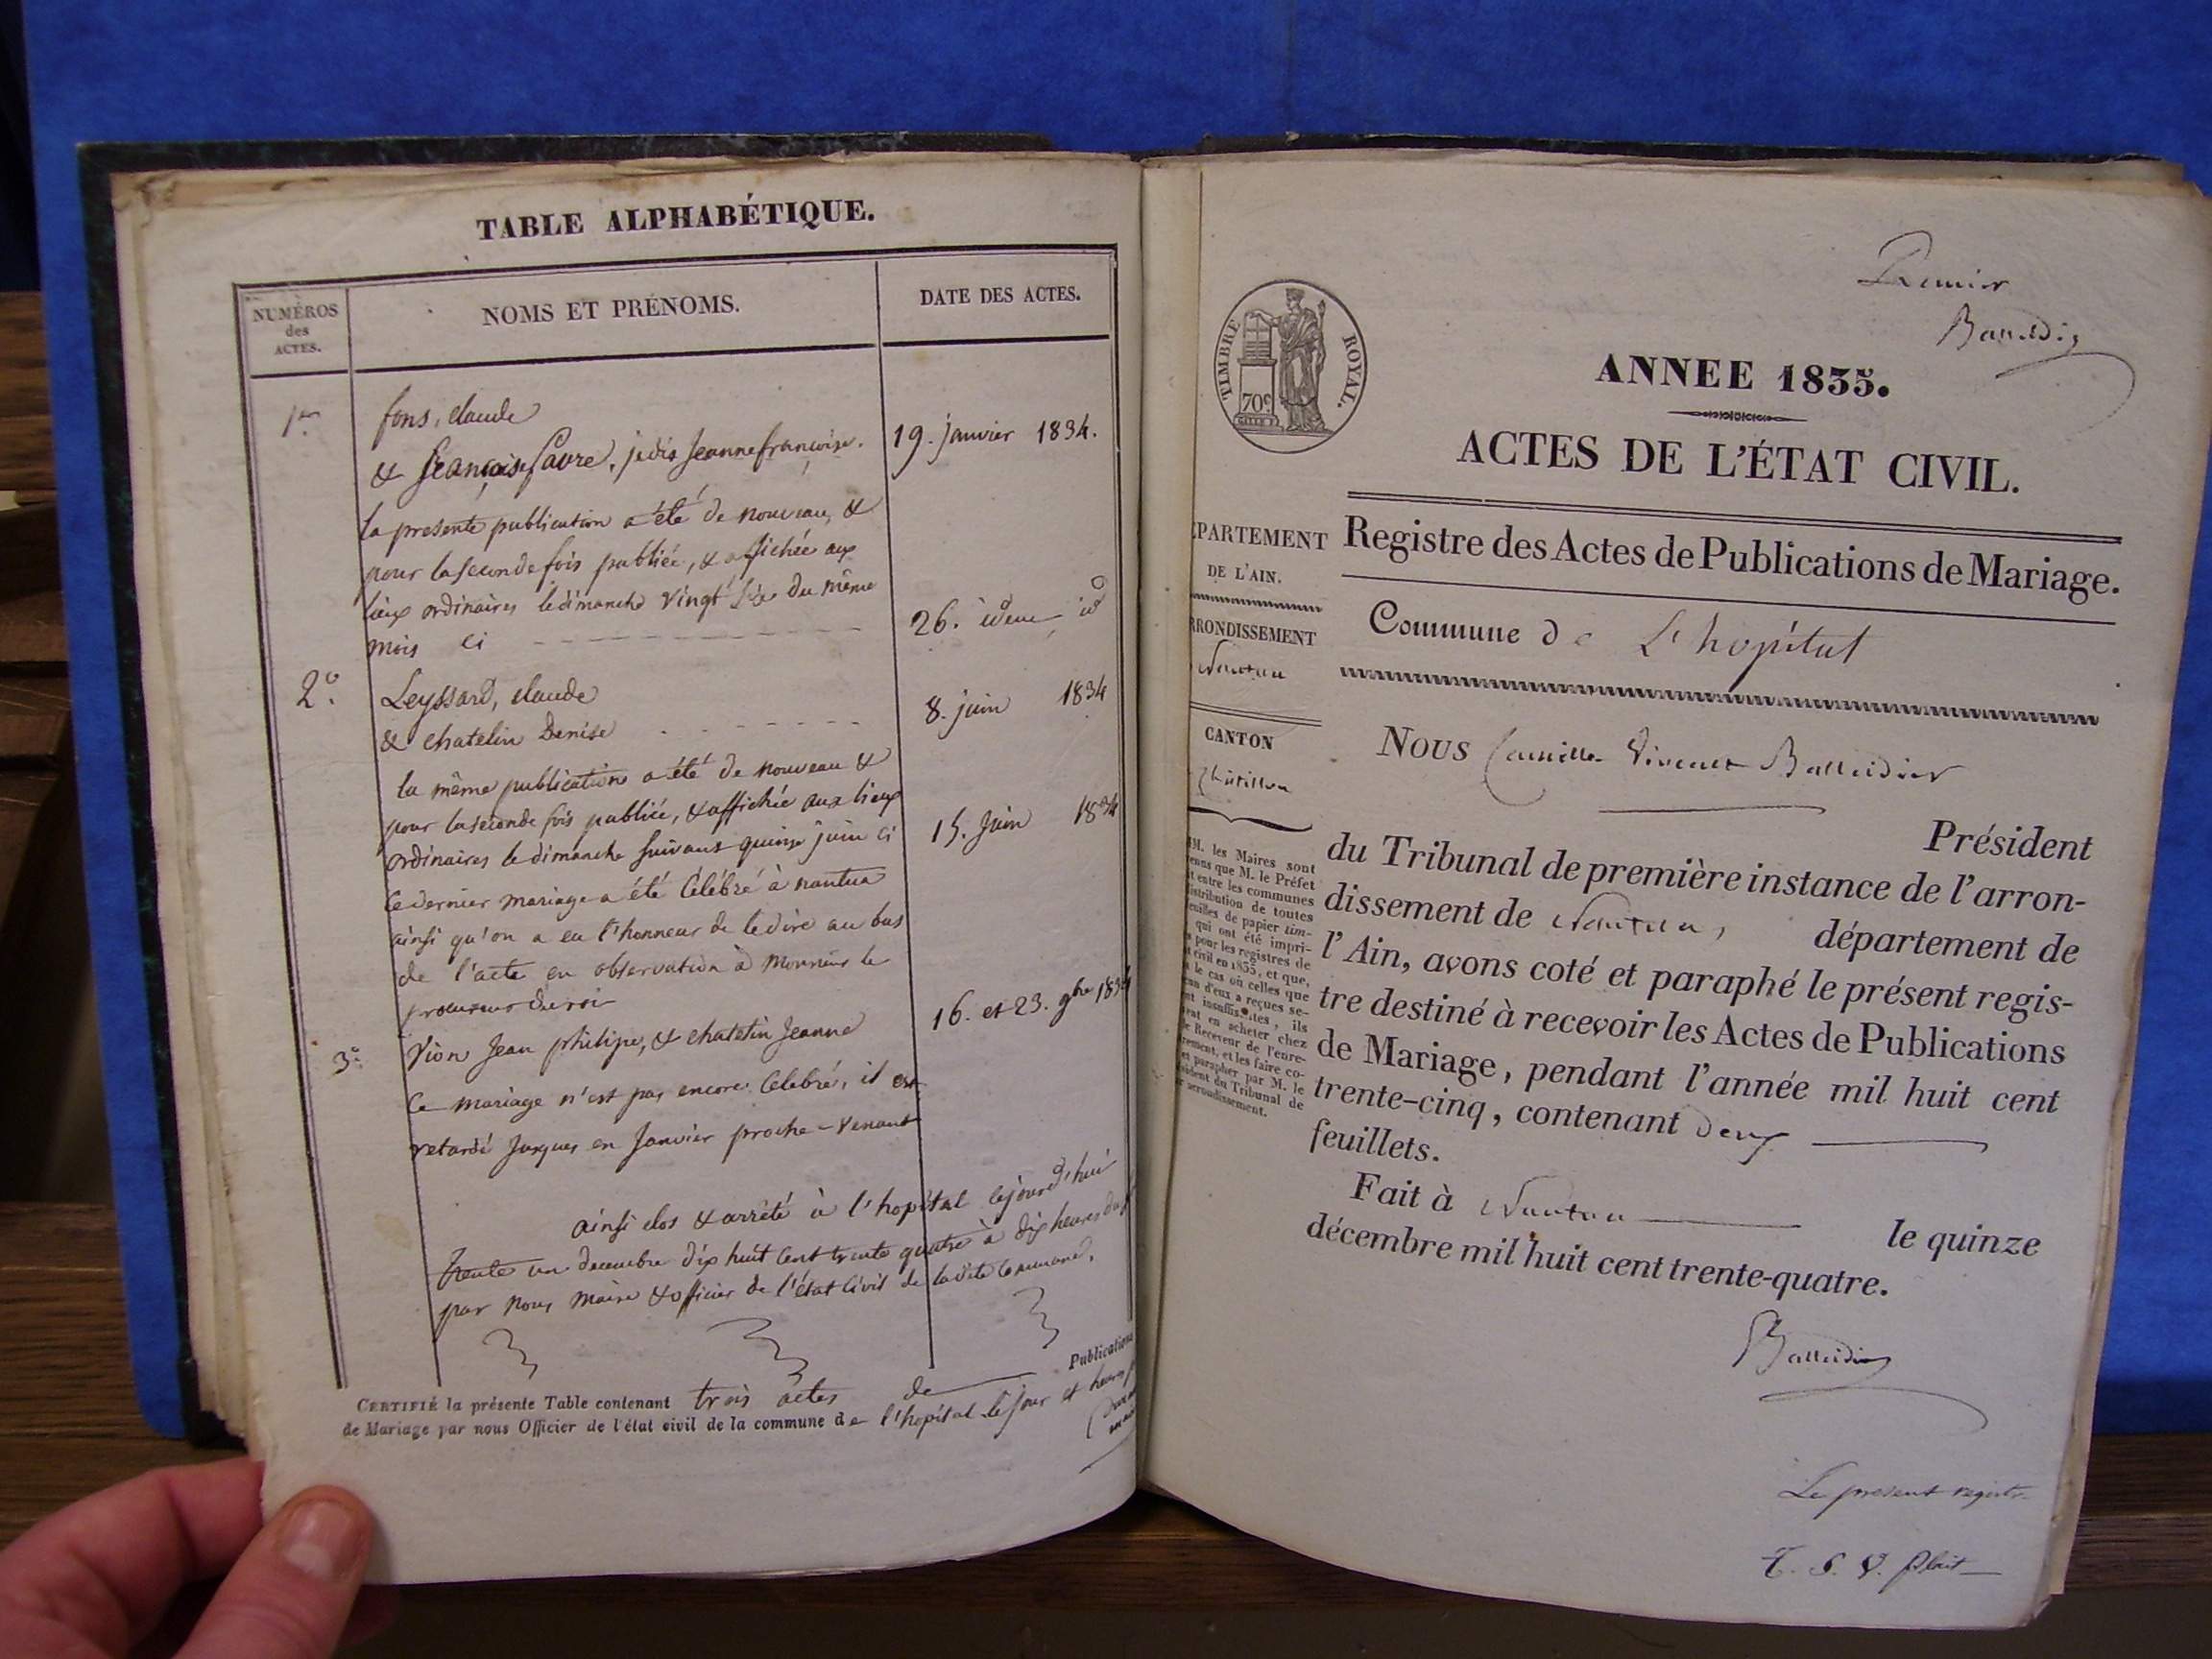 TABLE ALPHABÉTIQUE.
NUMÉROS
des
ACTES.
NOMS ET PRÉNOMS.
DATE DES ACTES.
1er.
fons, claude
& françoise favre, jadis Jeanne françoise.
19. janvier 1834.
la presente publication a été de nouveau, &
pour la seconde fois publiée, & affichée aux
lieux ordinaires le dimanche vingt six du même
mois ci
26. idem id
2º.
Leyssard, claude
& chatelin Denise
8. juin 1834
la même publication a été de nouveau &
pour la seconde fois publiée, & affichée aux lieux
ordinaires le dimanche suivant quinze juin ci
15. Juin 1834
ce dernier mariage a été célébré à nantua
ainsi qu'on a eu l'honneur de le dire au bas
de l'acte en observation à Monsieur le
procureur du roi
3º.
Vion Jean philipe, & chatelin Jeanne
16. et 23. 9bre 1834
Ce mariage n'est pas encore célébré, il est
retardé jusques en Janvier proche-venant
ainsi clos & arrêté à l'hopital cejourd'hui
trente un decembre dix huit cent trente quatre à dix heures du
par nous maire & officier de l'état civil de la dite commune.
CERTIFIÉ la présente Table contenant trois actes de Publications
de Mariage par nous Officier de l'état civil de la commune de l'hopital le jour et heure
Premier
Balleidier
TIMBRE ROYAL.
70c
ANNEE 1835.
ACTES DE L'ÉTAT CIVIL.
ÉPARTEMENT
DE L'AIN.
Registre des Actes de Publications de Mariage.
RRONDISSEMENT
Nantua
Commune de L'hopital
CANTON
Châtillon
Nous Camille Vincent Balleidier
Président
du Tribunal de première instance de l'arron-
dissement de Nantua, département de
l'Ain, avons coté et paraphé le présent regis-
tre destiné à recevoir les Actes de Publications
de Mariage, pendant l'année mil huit cent
trente-cinq, contenant deux
feuillets.
MM. les Maires sont
que M. le Préfet
entre les communes
distribution de toutes
feuilles de papier tim-
qui ont été impri-
pour les registres de
civil en 1835, et que,
le cas où celles que
d'eux a reçues se-
insuffisantes, ils
en acheter chez
le Receveur de l'enre-
et les faire co-
et parapher par M. le
Président du Tribunal de
arrondissement.
Fait à Nantua le quinze
décembre mil huit cent trente-quatre.
Balleidier
Le present registre
T. S. V. plait